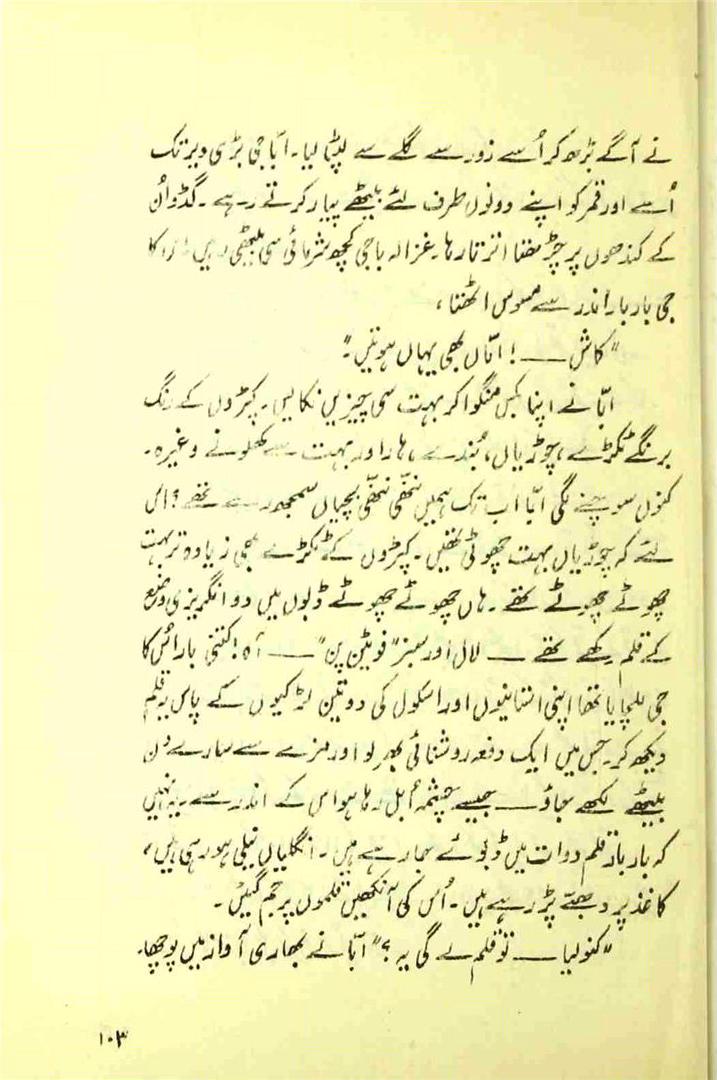 نے آگے بڑھ کر اُسے زور سے گلے سے لپٹا لیا۔ ابّا جی بڑی دیر تک
اُسے اور قمر کو اپنے دونوں طرف لئے بیٹھے پیار کرتے رہے۔ گڈو اُن
کے کندھوں پر چڑھتا اترتا رہا۔ غزالہ باجی کچھ شرمائی سی بیٹھی رہیں کا
جی بار بار اندر سے مسوس اٹھتا،
"کاش —— ! امّاں بھی یہاں ہوتیں۔"
ابّا نے اپنا بکس منگوا کر بہت سی چیزیں نکالیں۔ کپڑوں کے رنگ
برنگے ٹکڑے، چوڑیاں، بُندے، ہار اور بہت سے کھلونے وغیرہ۔
کنول سوچنے لگی ابّا اب تک ہمیں ننھّی ننھّی بچیاں سمجھ رہے تھے؟ اس
لئے کہ چوڑیاں بہت چھوٹی تھیں۔ کپڑوں کے ٹکڑے بھی زیادہ تر بہت
چھوٹے چھوٹے تھے۔ ہاں چھوٹے چھوٹے ڈبوں میں دو انگریزی وضع
کے قلم رکھے تھے —— لال اور سبز "فونٹین پن" —— آہ! کتنی بار اُس کا
جی للچایا تھا اپنی استانیوں اور اسکول کی دو تین لڑکیوں کے پاس یہ قلم
دیکھ کر۔ جس میں ایک دفعہ روشنائی بھر لو اور مزے سے سارے دن
بیٹھے لکھے جاؤ —— جیسے چشمہ اُبل رہا ہو اس کے اندر سے۔ یہ نہیں
کہ بار بار قلم دوات میں ڈبوئے جا رہے ہیں۔ انگلیاں نیلی ہو رہی ہیں،
کاغذ پر دھبّے پڑ رہے ہیں۔ اُس کی آنکھیں قلموں پر جم گئیں۔
"کنولیا —— تو قلم لے گی یہ؟" ابّا نے بھاری آواز میں پوچھا۔
۱۰۳